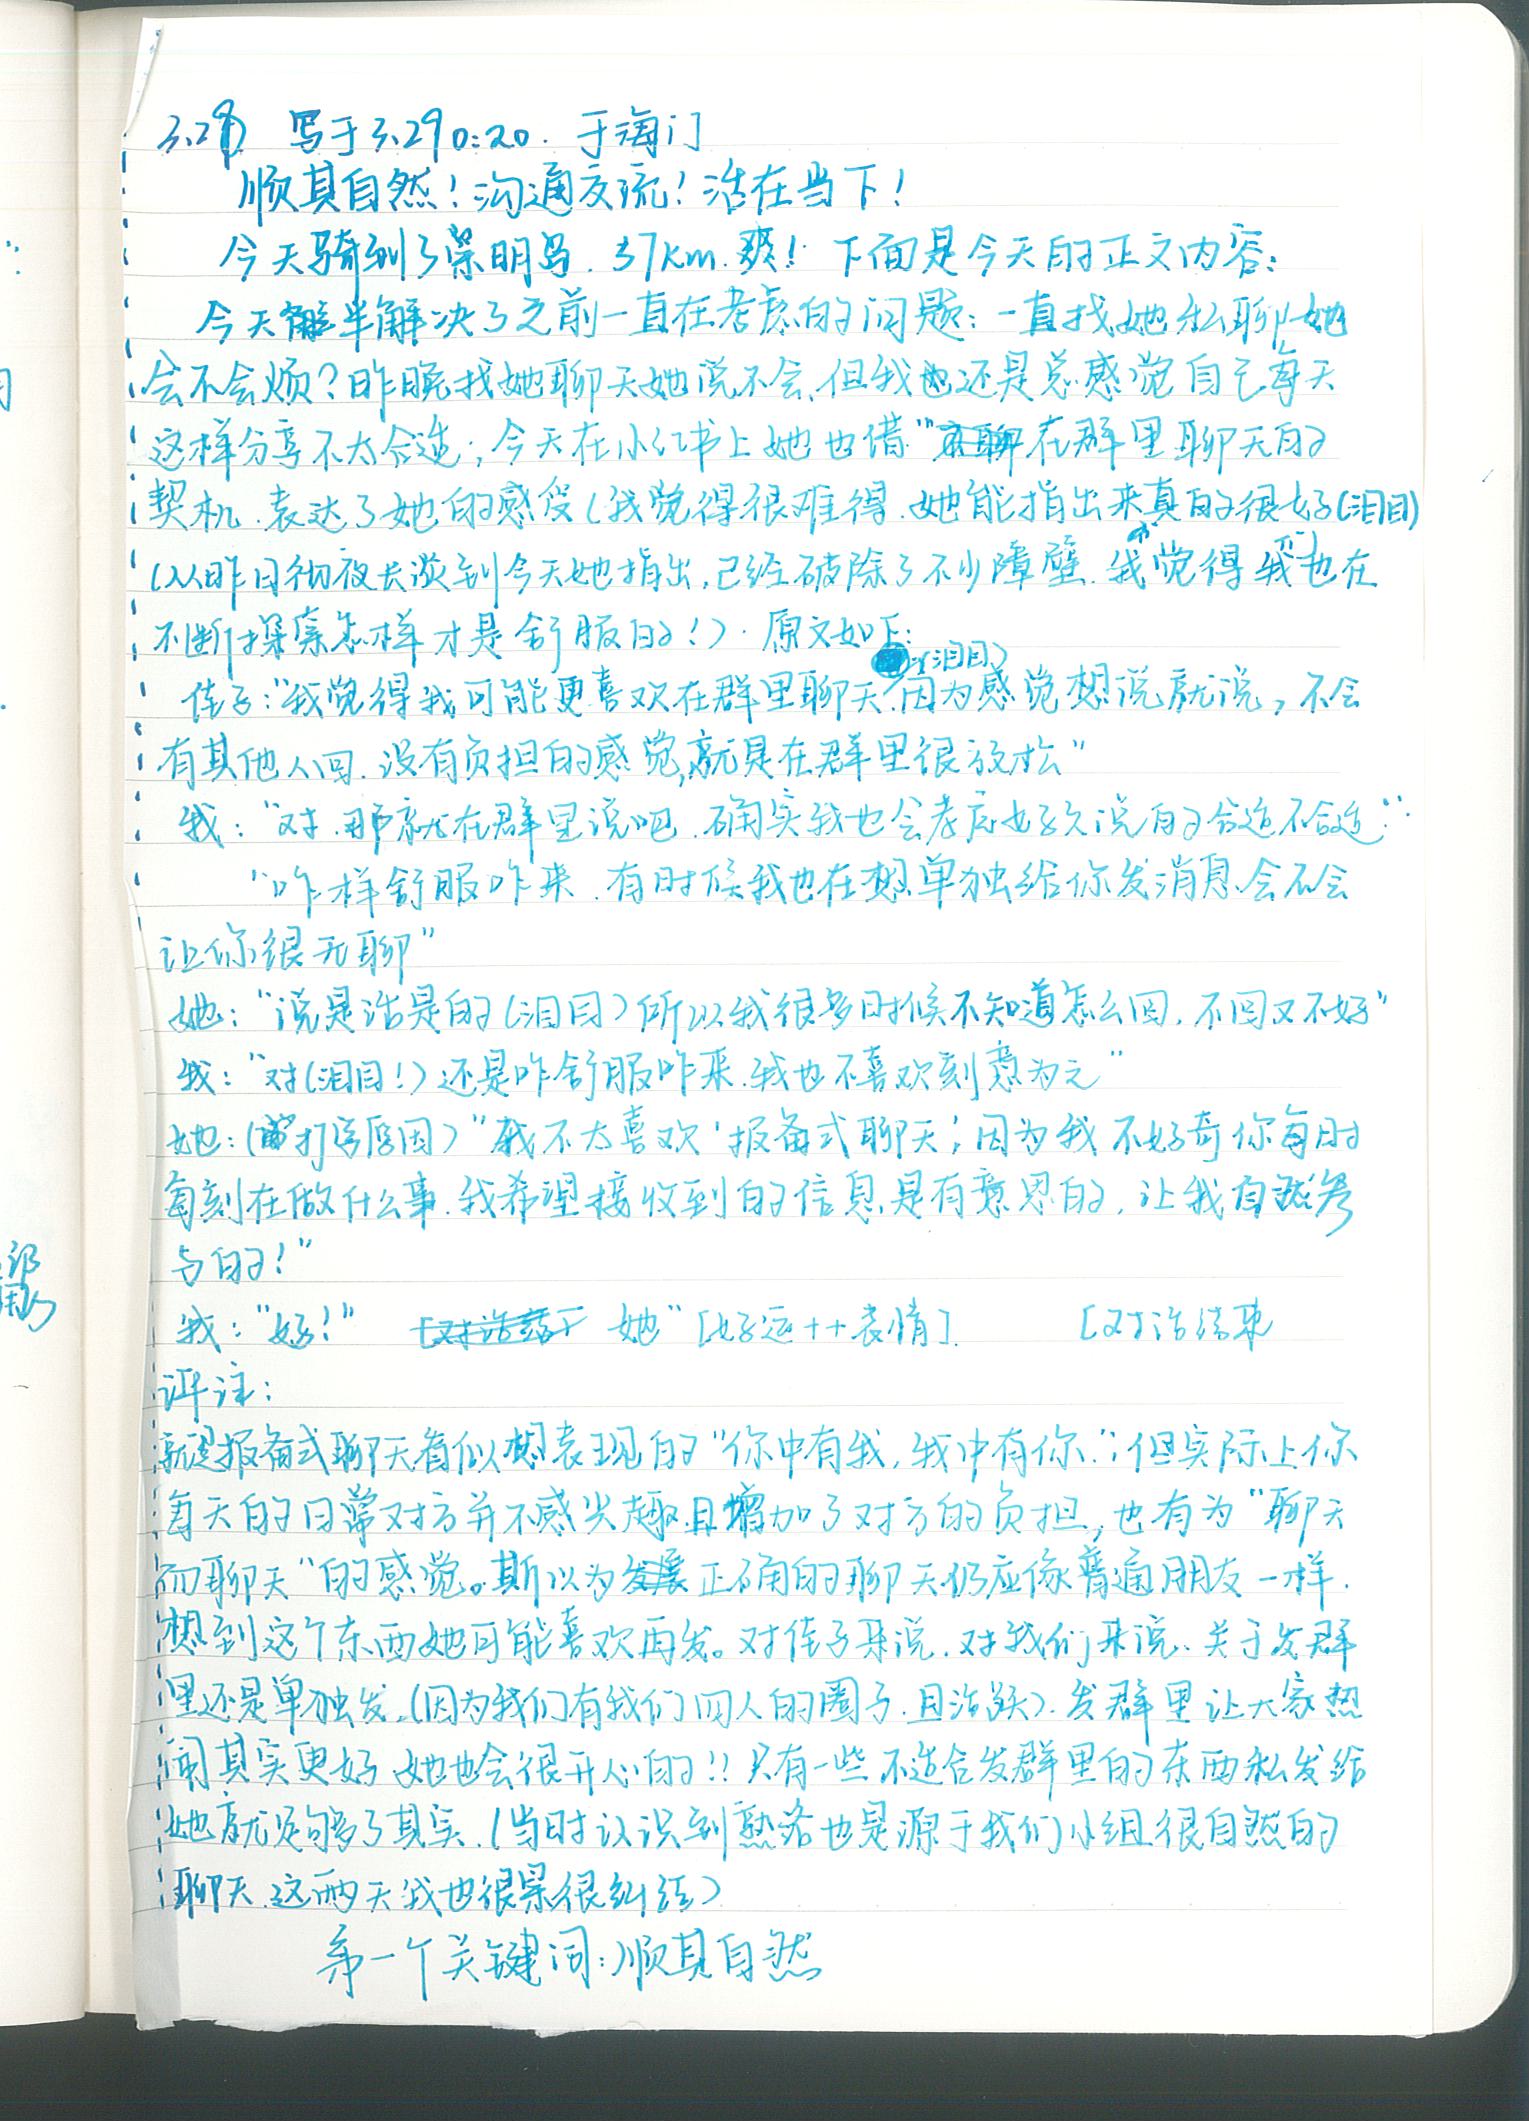 3.28 写于3.29 0:20. 于海门
顺其自然！沟通交流！活在当下！
今天骑到了崇明岛. 37km. 爽！下面是今天的正文内容：
今天解半解决了之前一直在考虑的问题：一直找她私聊她
会不会烦？昨晚找她聊天她说不会，但我也还是总感觉自己每天
这样分享不太合适；今天在小红书上她也借"在群里聊天的
契机.表达了她的感受（我觉得很难得.她能指出来真的很好（泪目）
（从昨日彻夜长谈到今天她指出，已经破除了不少障壁.我觉得我也在
不断探索怎样才是舒服的！）. 原文如下：
佳子："我觉得我可能更喜欢在群里聊天(泪目)因为感觉想说就说，不会
有其他人回.没有负担的感觉，就是在群里很放松"
我："对.那就在群里说吧.确实我也会考虑好久说的合适不合适"
"咋样舒服咋来.有时候我也在想单独给你发消息会不会
让你很无聊"
她："说是话是的（泪目）所以我很多时候不知道怎么回，不回又不好"
我："对（泪目！）还是咋舒服咋来.我也不喜欢刻意为之"
她：（打字原因）"我不太喜欢'报备式聊天'；因为我不好奇你每时
每刻在做什么事.我希望接收到的信息是有意思的，让我自然参
与的！"
我："好！" [对话结束 她"[好运++表情]. [对话结束
评注：
就是报备式聊天看似想表现的"你中有我，我中有你"；但实际上你
每天的日常对方并不感兴趣.且增加了对方的负担，也有为"聊天
而聊天"的感觉。斯以为发展正确的聊天仍应像普通朋友一样.
想到这个东西她可能喜欢再发。对佳子来说.对我们来说.关于发群
里还是单独发.（因为我们有我们四人的圈子.且活跃）.发群里让大家热
闹其实更好 她也会很开心的！！只有一些不适合发群里的东西私发给
她就足够多了其实.（当时认识到熟络也是源于我们小组很自然的
聊天.这两天我也很累很纠结）
第一个关键词：顺其自然